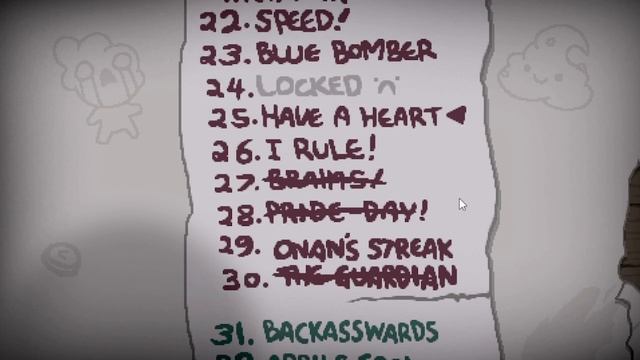 22. SPEED!
23. BLUE BOMBER
24. LOCKED
25. HAVE A HEART
26. I RULE!
27. BRAINS!
28. PRIDE DAY!
29. ONAN'S STREAK
30. THE GUARDIAN
31. BACKASSWARDS